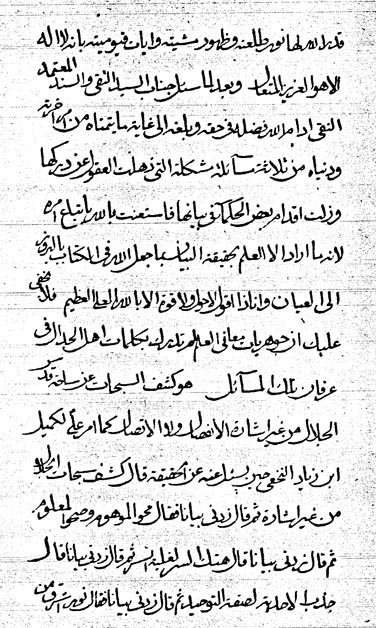 قدر الله لها نور طلعته وظهور مشيته وايات قيوميته بانه لا اله
الا هو العزيز المتعال وبعد لما سئل جناب السيد التقى والسند المعتمد
النقى ادام الله فضله فى حقه وبلغه الى غاية ما يتمناه من امر اخرته
ودنياه من ثلاثة مسائل مشكلة التى ذهلت العقول عن دركها
وزلت اقدام بعض الحكماء فى بيانها فاستعنت بالله باتباع امره
لانه ما اراد الا العلم بحقيقة البيان بما جعل الله فى الكتاب
الى العيان وانا ذا اقول لا حول ولا قوة الا بالله العلى العظيم فلا يخفى
عليك ان جوهريات معانى العلم لم تدرك بكلمات اهل الجدال فى
عرفان تلك المسائل هو كشف السبحات عن ساحة قدس
الجلال من غير اشارة الانفصال ولا الاتصال كما امر على لكميل
ابن زياد النخعى حين يسئل عنه عن الحقيقة قال كشف سبحات الجلال
من غير اشارة ثم قال زدنى بيانا فقال محو الموهوم وصحو المعلوم
ثم قال زدنى بيانا قال هتك الستر لغلبة السر ثم قال زدنى بيانا قال
جذب الاحدية لصفة التوحيد ثم قال زدنى بيانا فقال نور اشرق من